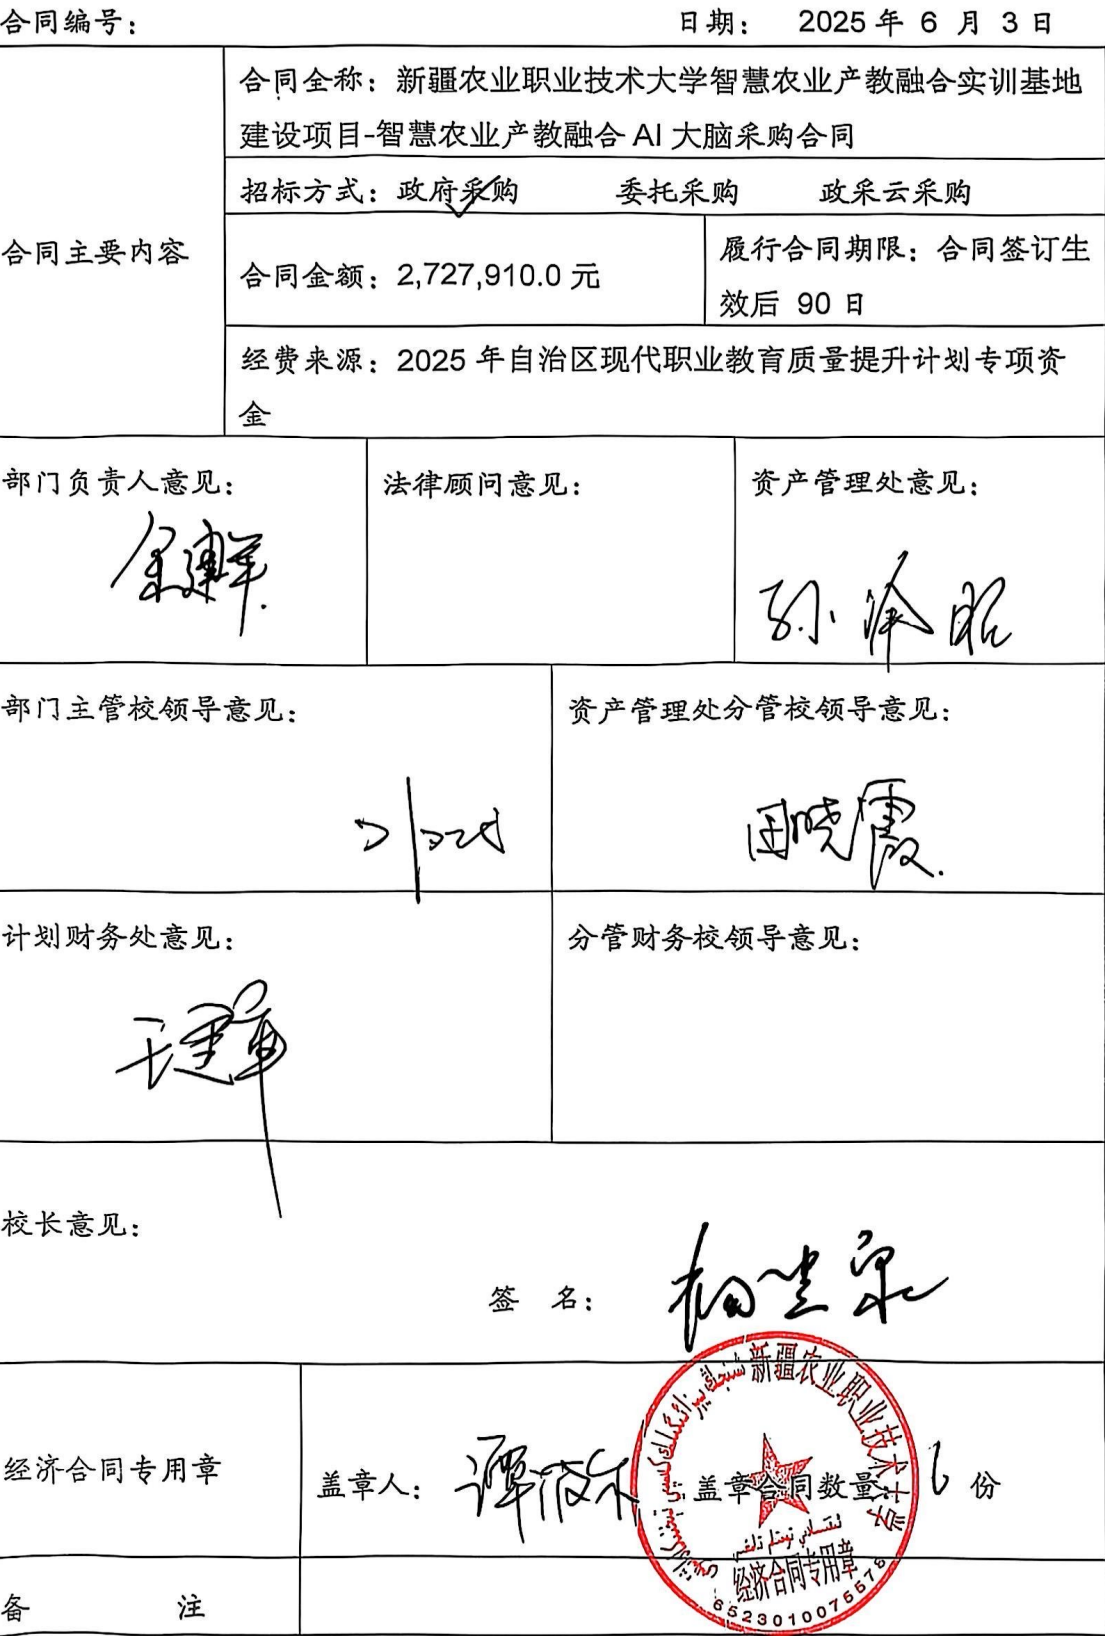 合同编号：
日期： 2025 年 6 月 3 日
合同主要内容
合同全称：新疆农业职业技术大学智慧农业产教融合实训基地
建设项目-智慧农业产教融合 AI 大脑采购合同
招标方式：政府采购 委托采购 政采云采购
合同金额：2,727,910.0 元
履行合同期限：合同签订生
效后 90 日
经费来源：2025 年自治区现代职业教育质量提升计划专项资
金
部门负责人意见：
法律顾问意见：
资产管理处意见：
部门主管校领导意见：
资产管理处分管校领导意见：
田晓霞
计划财务处意见：
分管财务校领导意见：
校长意见：
签 名：
经济合同专用章
盖章人：
盖章合同数量： 6 份
新疆农业职业技术大学
经济合同专用章
6523010075578
备 注